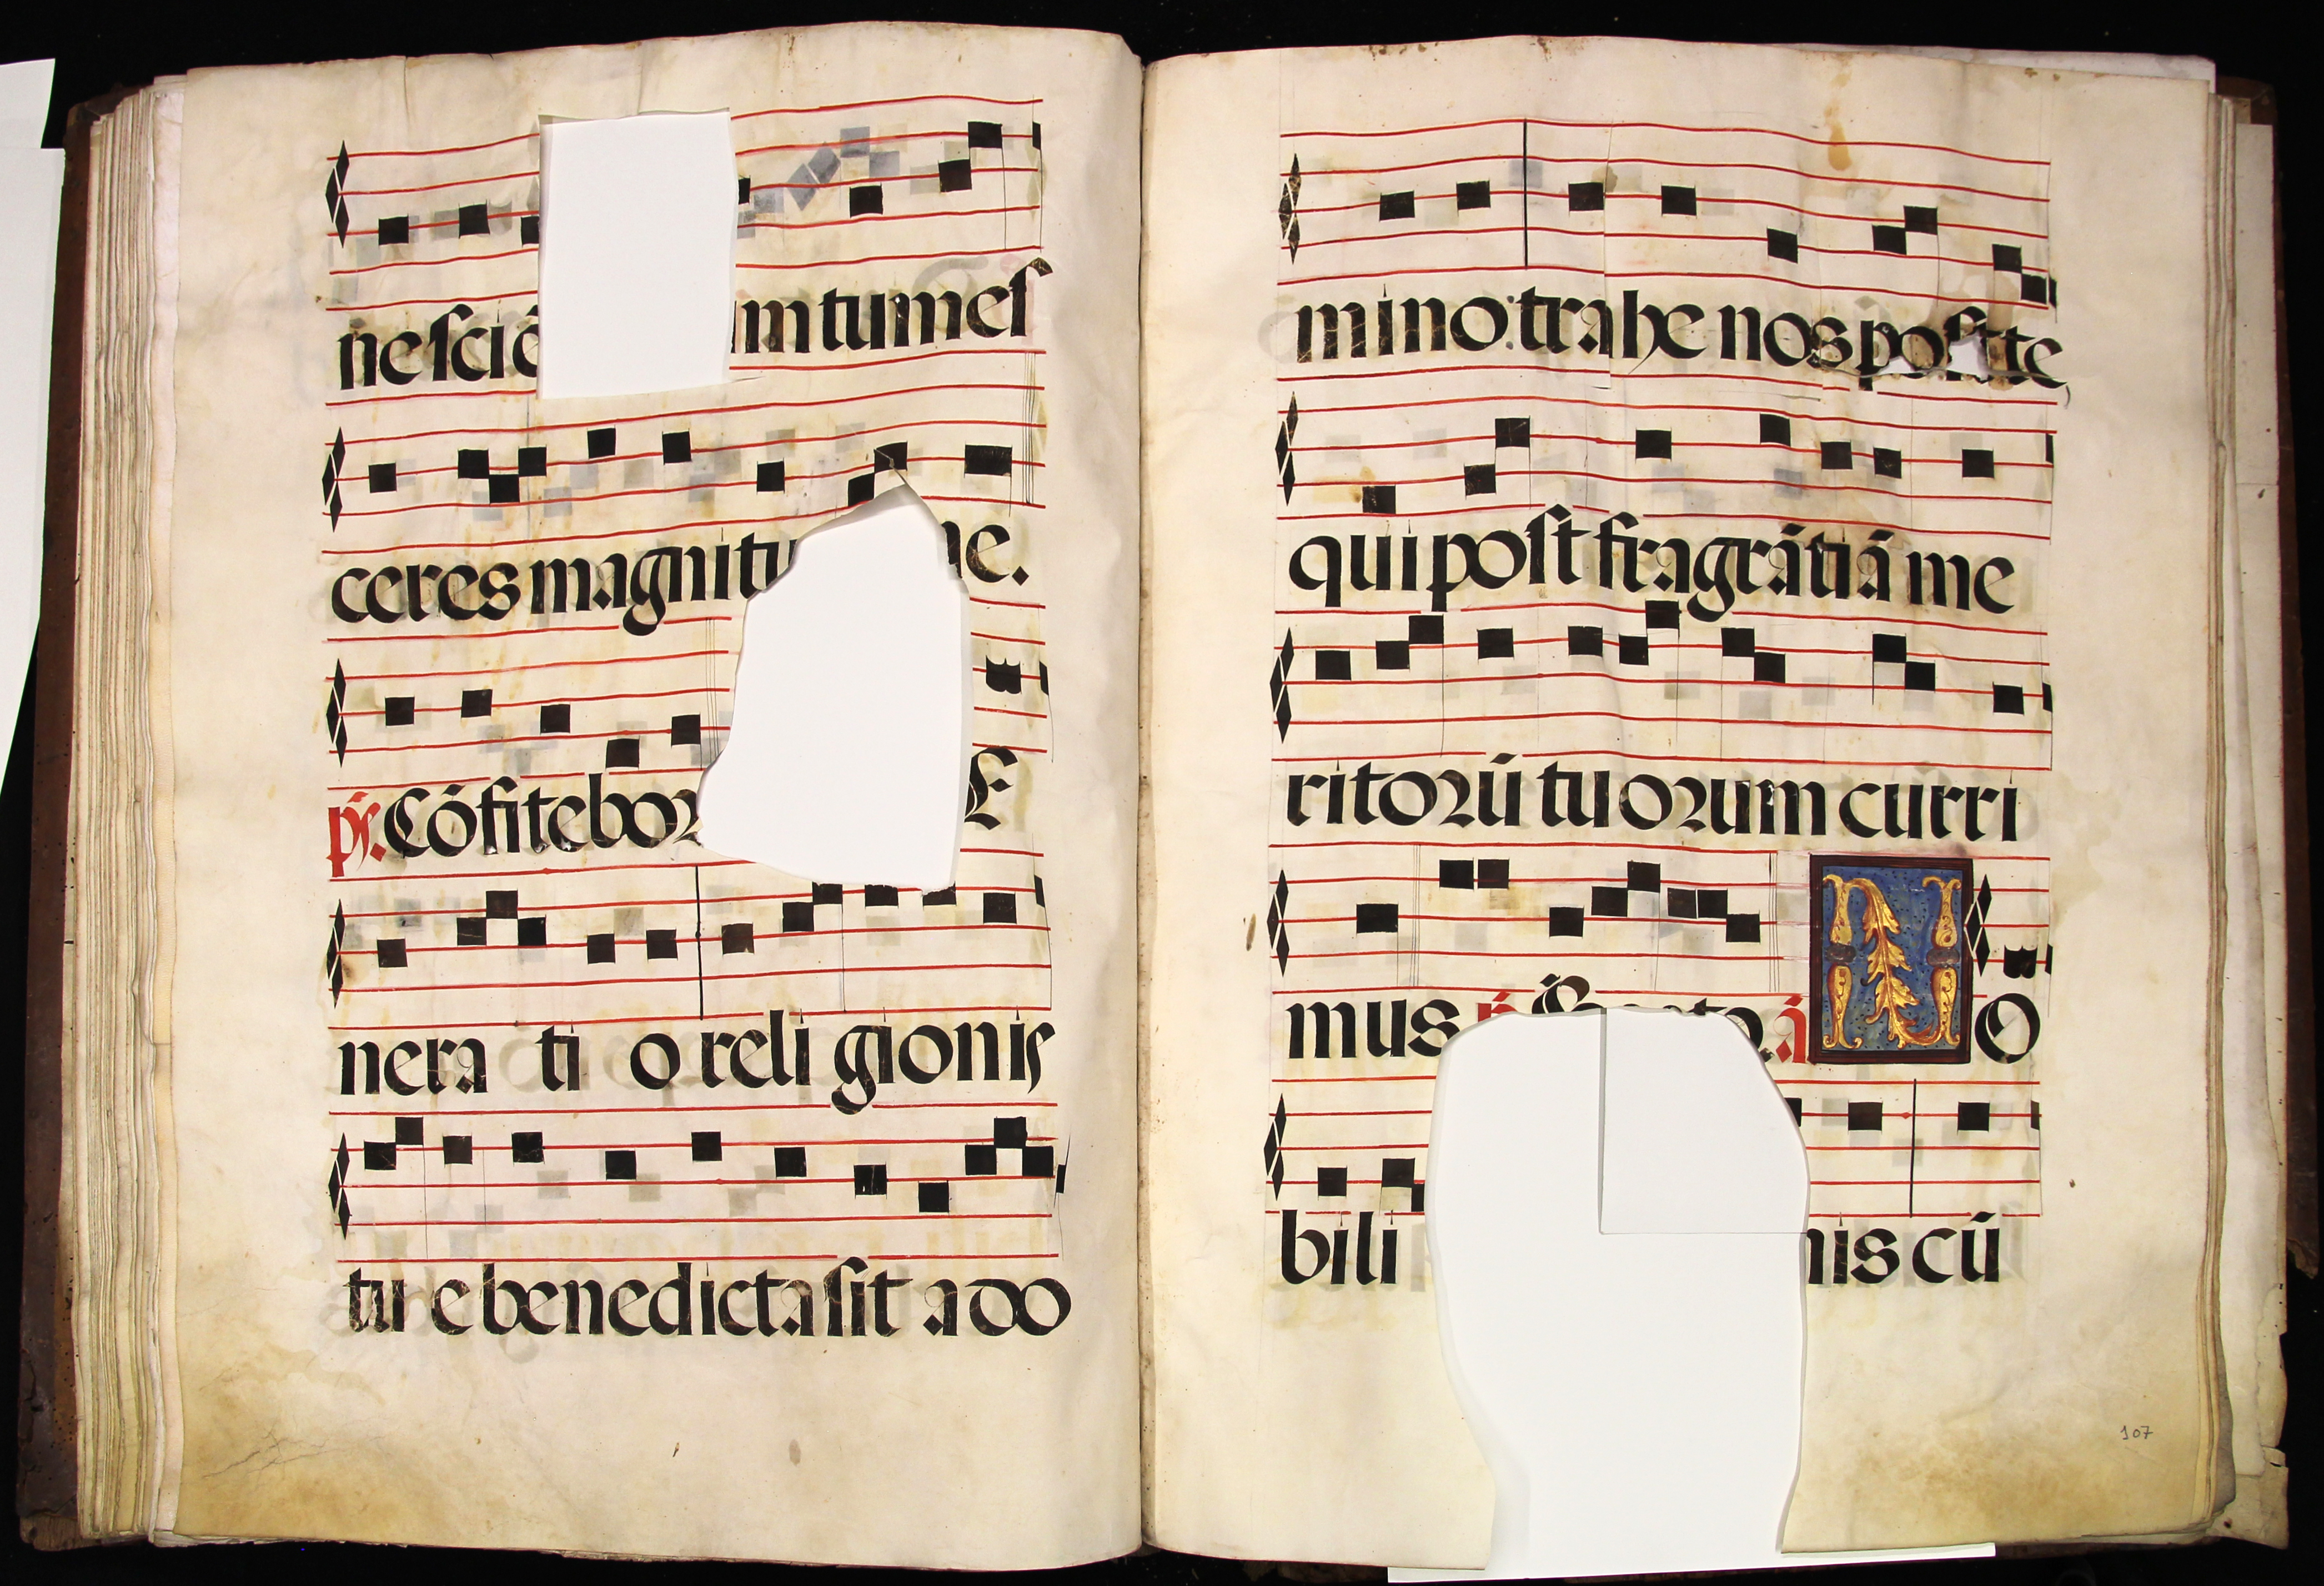 nescie mtumes
ceres magnitu ne.
ps. Cōfitebor E
nera ti o religionis
tue benedicta sit a do
mino: trahe nos post te
qui post fragrātiā me
ritorū tuorum curri
mus ā N O
bili nis cū
107